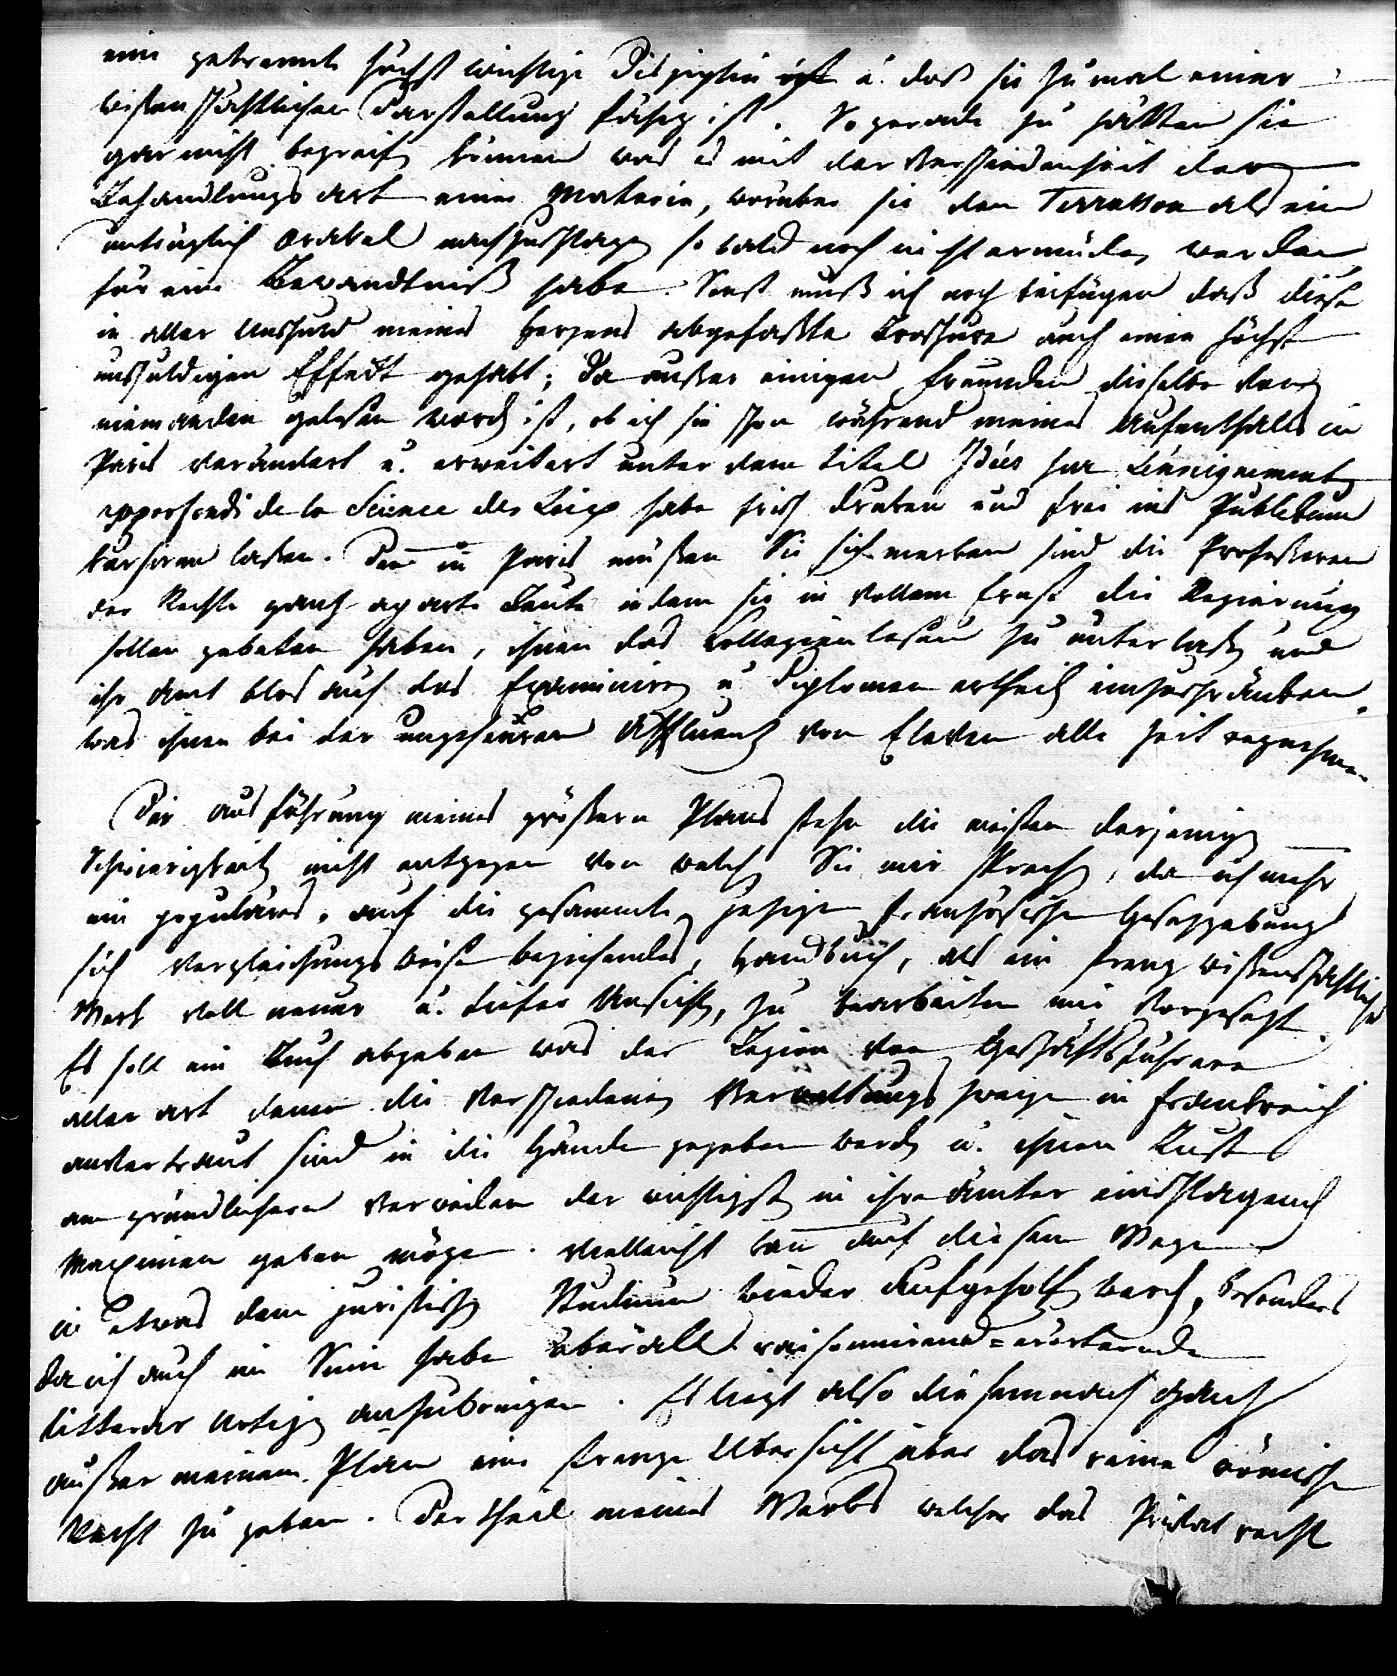 eine getrennte höchst wichtige Disziplin ist u. daß sie zumal einer
wissenschaftlichen Darstellung fähig ist. So gerade zu hätten sie
gar nicht begreifen können was es mit der Verschiedenheit der
Behandlungsart einer Materie, worüber sie den Terrasson als ein
untrüglich Orakel nachzuschlagen so bald noch nicht ermüden werden
für eine Bewandtniß habe. Sonst muß ich noch beifügen daß diese
in aller Unschuld meines Herzens abgefaßte Broschure auch einen höchst
unschuldigen Effect gehabt; da außer einigen Freunden dieselbe von
niemanden gelesen worden ist, ob ich sie schon während meines Aufenthalts in
Paris verändert u. erweitert unter dem Titel Idées sur l'enseignement
approfondi de la Science des Loix habe frisch drucken und frei ins Publikum
kursiren lassen. Denn in Paris müßen Sie sich merken sind die Professoren
der Rechte ganz aparte Leute indem sie in vollem Ernst die Regierung
sollen gebeten haben, ihnen das Collegienlesen zu unterlaßen und
ihr Amt blos auf das Examiniren u. Diplomen ertheilen einzuschränken,
was ihnen bei der ungeheuren Affluenz von Eleven alle Zeit wegnehme.
Der Ausführung meines größern Plans stehn die meisten derjenigen
Schwierigkeiten nicht entgegen von welchen Sie mir sprachen, da ich mehr
ein populäres, auf die gesammte jetzige französische Gesetzgebung
sich vergleichungsweise beziehendes, Handbuch, als ein streng wissenschaftliches
Werk voll neuer u. tiefer Ansichten, zu bearbeiten mir vorgesetzt
Es soll ein Buch abgeben was der Legion von Geschäftsführern
aller Art denen die verschiedenen Verwaltungszweige in Frankreich
anvertraut sind in die Hände gegeben werden u. ihnen Lust
am gründlichern Verweilen der wichtigsten in ihre Ämter einschlagenden
Maximen geben möge. Vielleicht kann auf diesem Wege
in Etwas dem juristischen Studium wieder aufgeholfen werden, besonders
da ich auch im Sinn habe überall raisonnirend=erörternde
litterar Notizen anzubringen. Es liegt also diesemnach ganz
außer meinem Plan eine strenge Übersicht über das reine römische
Recht zu geben. Der Theil meines Werks welcher das Privatrecht